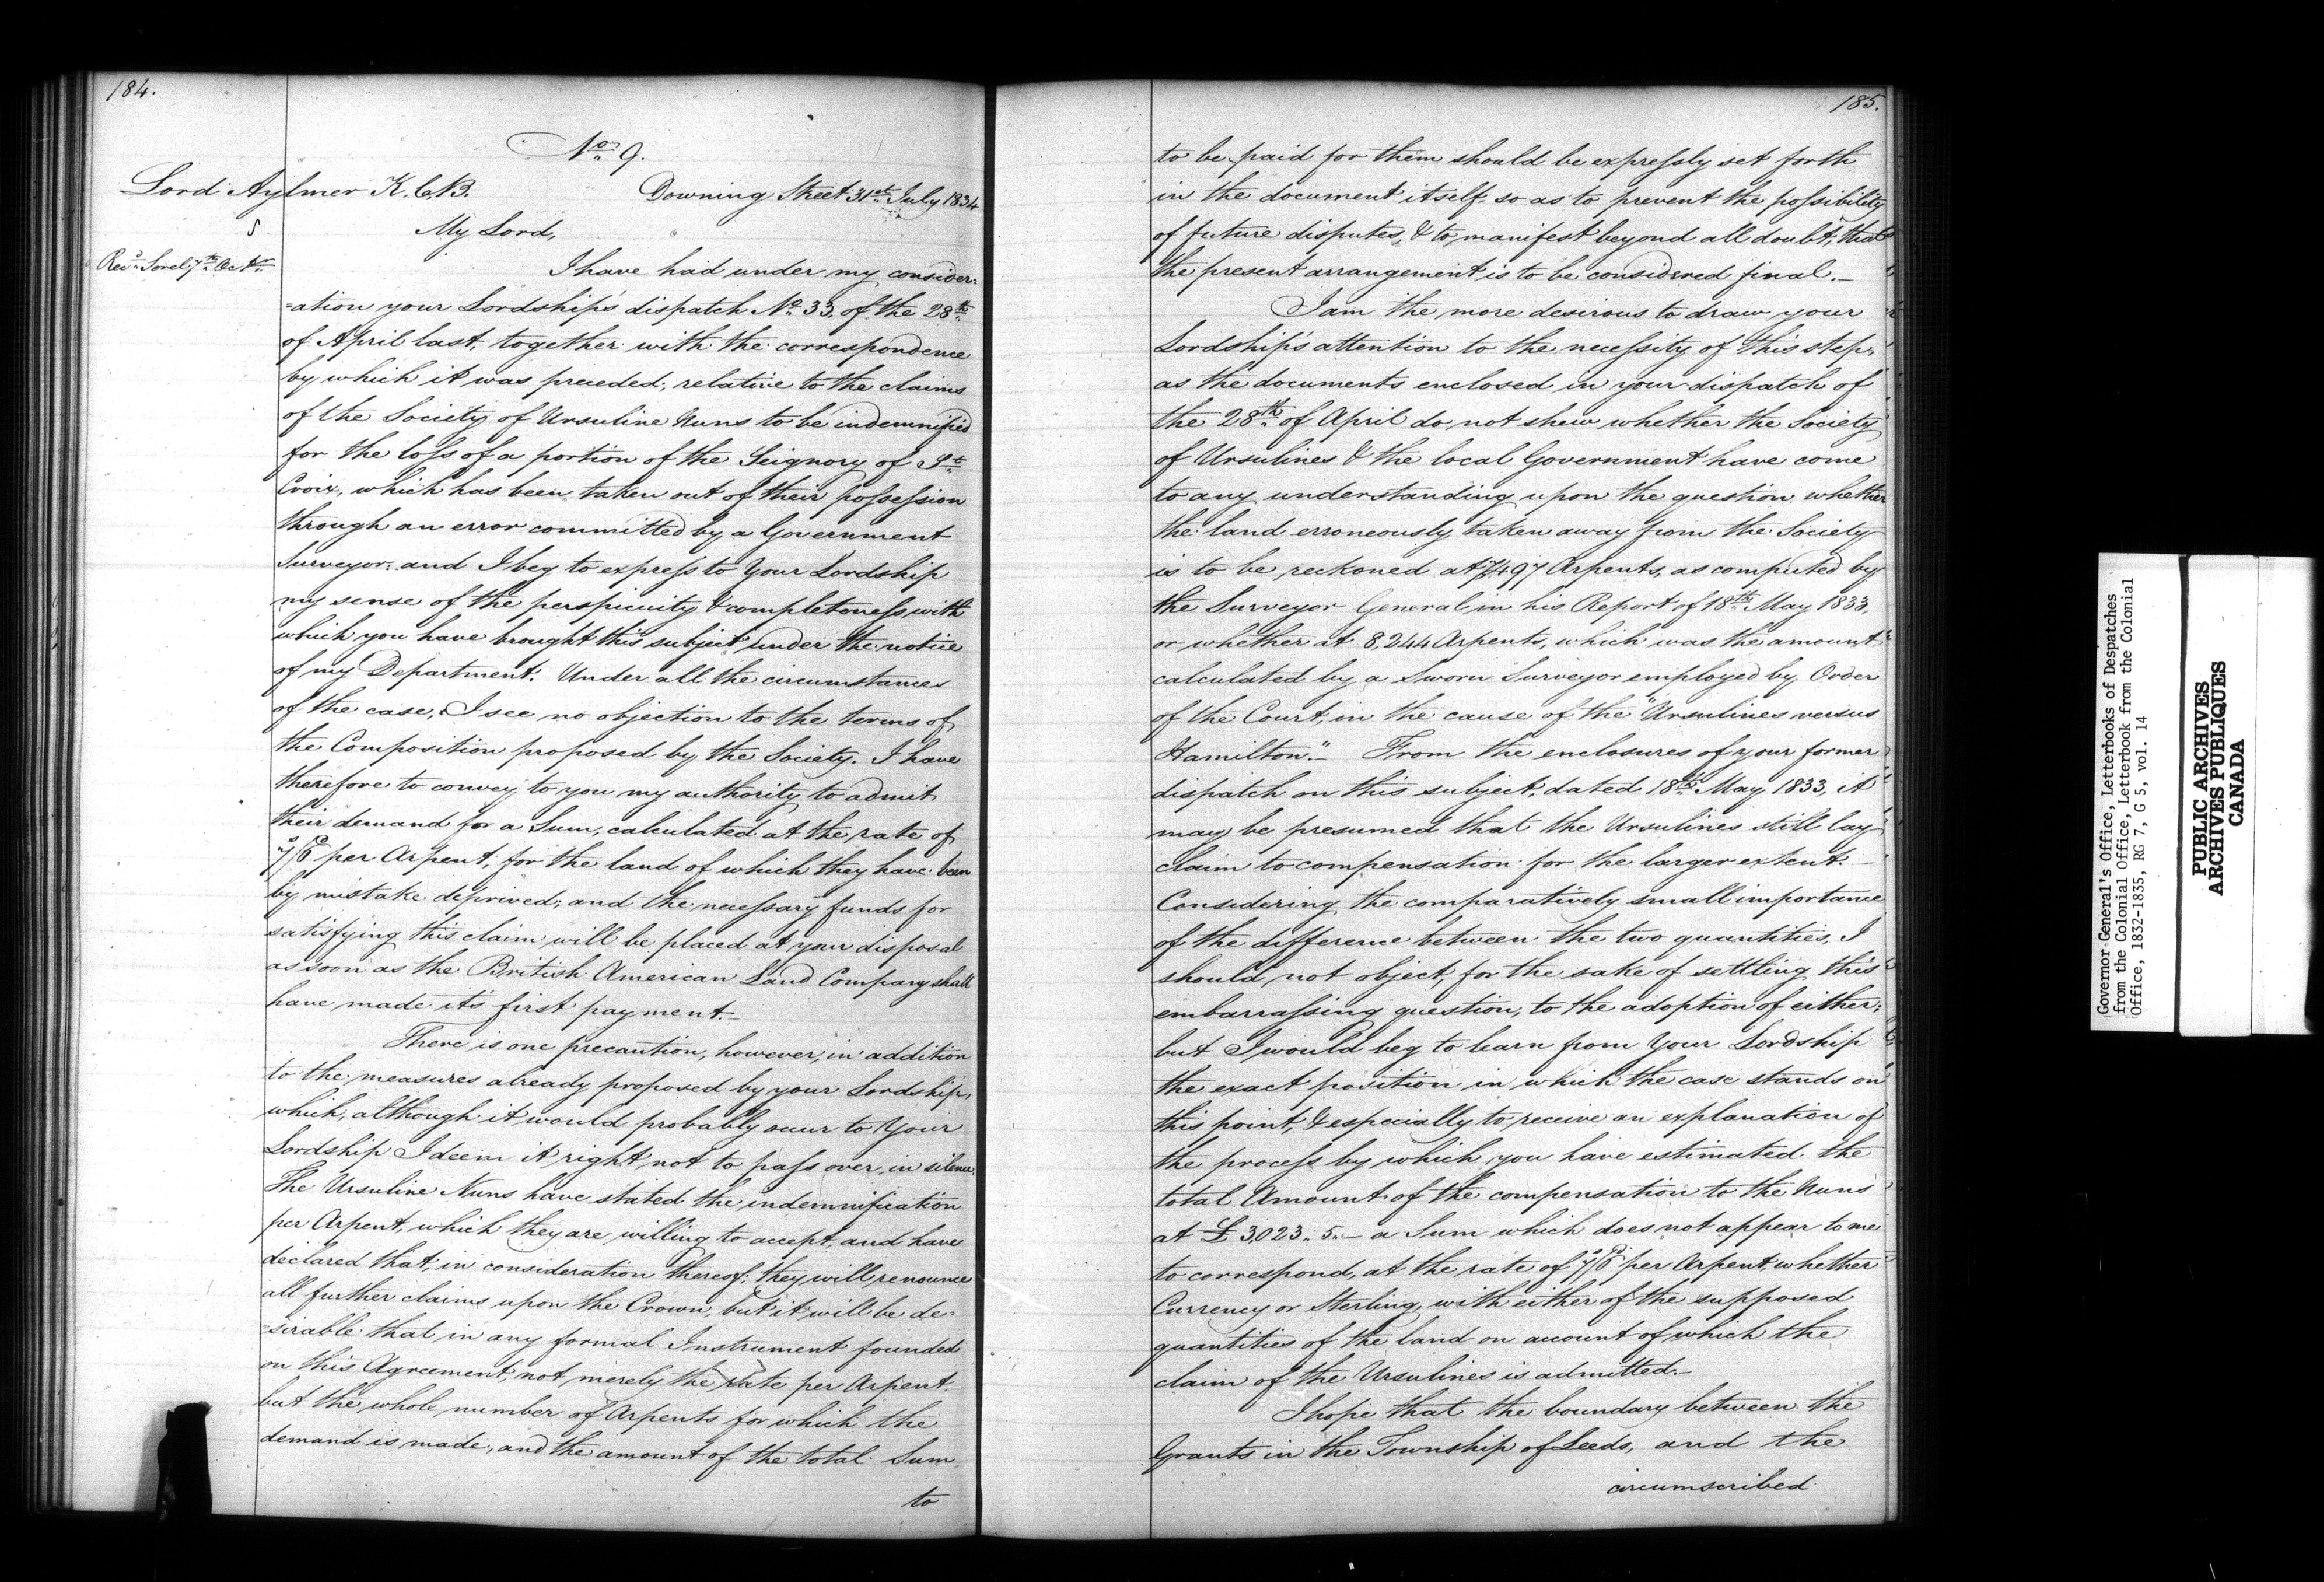 184.
No 9.
Lord Aylmer K.C.B.
Downing Street 31st July 1834
My Lord,
Recd Sorel 7th Octr
I have had under my consider=
=ation your Lordship's dispatch No 33. of the 28th
of April last, together with the correspondence
by which it was preceded; relative to the claims
of the Society of Ursuline Nuns to be indemnified
for the loss of a portion of the Seignory of St
Croix, which has been taken out of their possession
through an error committed by a Government
Surveyor; and I beg to express to Your Lordship
my sense of the perspicuity & completeness with
which you have brought this subject under the notice
of my Department. Under all the circumstances
of the case, I see no objection to the terms of
the Composition proposed by the Society. I have
therefore to convey to you my authority to admit
their demand for a Sum, calculated at the rate of
7s/6d per Arpent, for the land of which they have been
by mistake deprived; and the necessary funds for
satisfying this claim will be placed at your disposal
as soon as the British American Land Company shall
have made it's first payment.
There is one precaution, however, in addition
to the measures already proposed by your Lordship,
which, although it would probably occur to Your
Lordship I deem it right not to pass over in silence.
The Ursuline Nuns have stated the indemnification
per Arpent, which they are willing to accept, and have
declared that, in consideration thereof, they will renounce
all further claims upon the Crown, but it will be de=
=sirable that in any formal Instrument founded
on this Agreement, not merely the rate per Arpent,
but the whole number of Arpents for which the
demand is made, and the amount of the total Sum
to
185.
to be paid for them should be expressly set forth
in the document itself, so as to prevent the possibility
of future disputes, & to manifest beyond all doubt, that
the present arrangement is to be considered final.—
I am the more desirous to draw your
Lordship's attention to the necessity of this step,
as the documents enclosed in your dispatch of
the 28th of April do not shew whether the Society
of Ursulines & the local Government have come
to any understanding upon the question whether
the land erroneously taken away from the Society
is to be reckoned at 7,497 Arpents, as computed by
the Surveyor General in his Report of 18th May 1833,
or whether at 8,244 Arpents, which was the amount
calculated by a Sworn Surveyor employed by Order
of the Court, in the cause of the "Ursulines versus
Hamilton".— From the enclosures of your former
dispatch on this subject, dated 18th May 1833, it
may be presumed that the Ursulines still lay
claim to compensation for the larger extent.—
Considering the comparatively small importance
of the difference between the two quantities, I
should not object, for the sake of settling this
embarrassing question, to the adoption of either;
but I would beg to learn from Your Lordship
the exact position in which the case stands on
this point, & especially to receive an explanation of
the process by which you have estimated the
total Amount of the compensation to the Nuns
at £3,023.. 5.— a Sum which does not appear to me
to correspond, at the rate of 7s/6d per Arpent, whether
Currency or Sterling, with either of the supposed
quantities of the land on account of which the
claim of the Ursulines is admitted.—
I hope that the boundary between the
Grants in the Township of Leeds, and the
circumscribed
Governor General's Office, Letterbooks of Despatches
from the Colonial Office, Letterbook from the Colonial
Office, 1832-1835, RG 7, G 5, vol. 14
PUBLIC ARCHIVES
ARCHIVES PUBLIQUES
CANADA